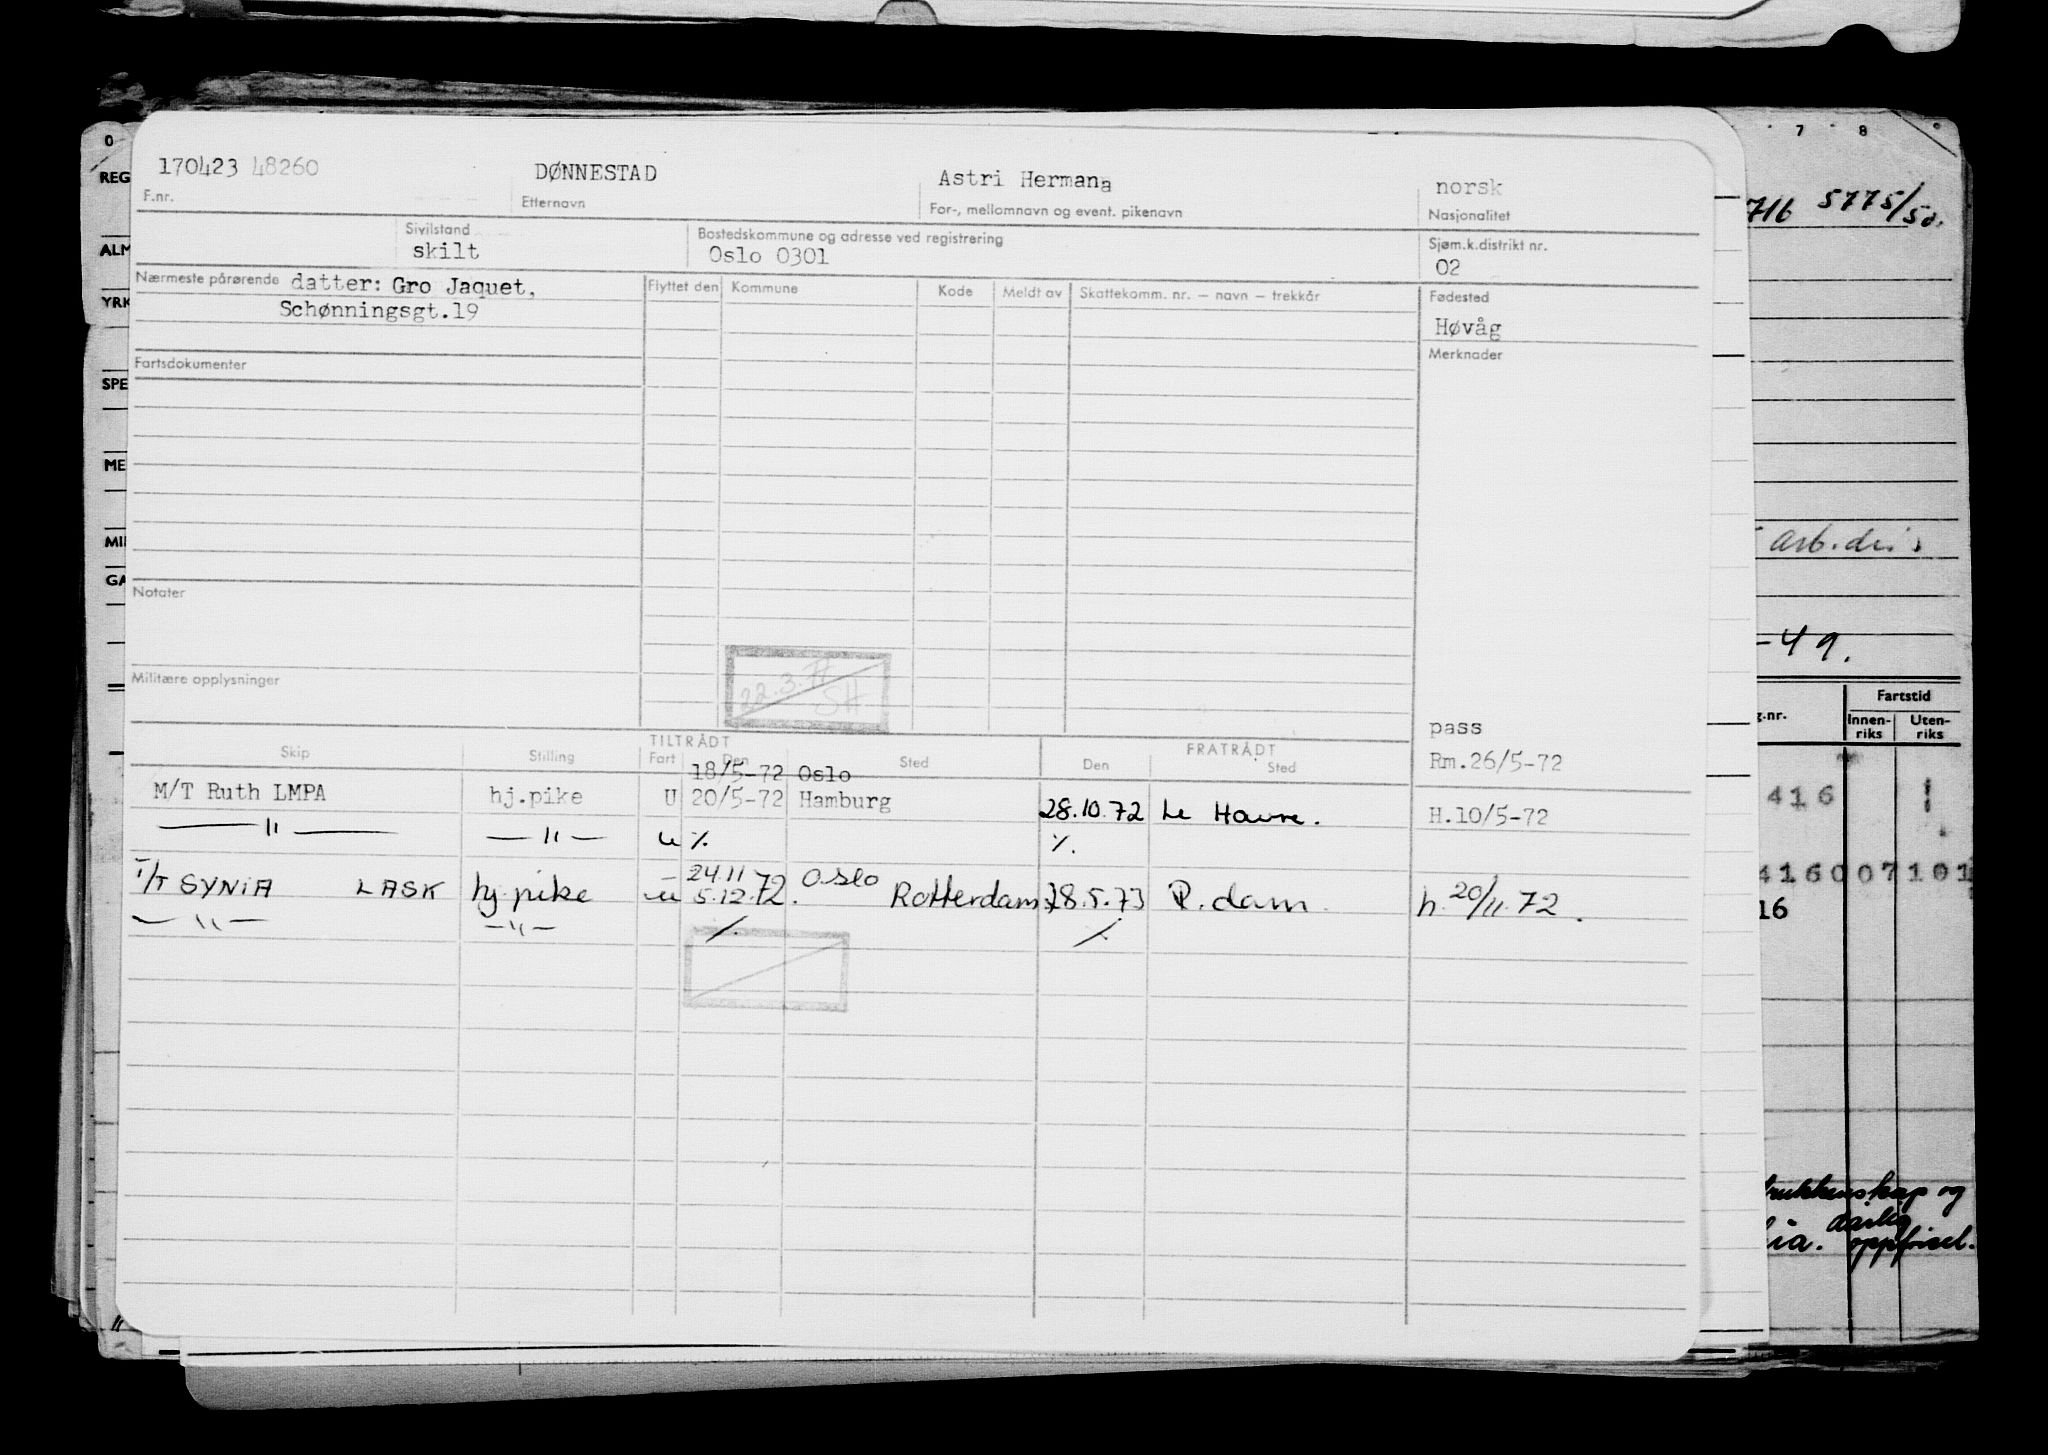 170423 48260 DØNNESTAD Astri Hermana norsk
F.nr. Etternavn For-, mellomnavn og event. pikenavn Nasjonalitet
Sivilstand Bostedskommune og adresse ved registrering Sjøm.k.distrikt nr.
skilt Oslo 0301 02
Nærmeste pårørende datter: Gro Jaquet, Flyttet den Kommune Kode Meldt av Skattekomm. nr. – navn – trekkår Fødested
Schønningsgt.19 Høvåg
Fartsdokumenter Merknader
Notater
22.3.77 SH
Militære opplysninger
pass
TILTRÅDT FRATRÅDT
Skip Stilling Fart Den Sted Den Sted Rm.26/5-72
18/5-72 Oslo
M/T Ruth LMPA hj.pike U 20/5-72 Hamburg 28.10.72 Le Havre. H.10/5-72
— " — — " — u ٪. ٪.
— 24.11 Oslo
T/T SYNIA LASK hj.pike u 5.12.72. Rotterdam 28.5.73 R.dam. h.20/11.72.
— " — — " — ٪. ٪.
0 7 8
REG
716 5775/50.
ALM
YRK
SPE
ME
MI
arb.
GA
-49.
Fartstid
g.nr. Innen-riks Uten-riks
416 1
416007101
16
og
dårlig
oppførsel.